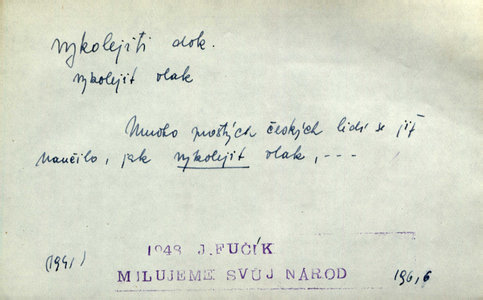 vykolejiti dok.
vykolejit vlak
Mnoho prostých českých lidí se již
naučilo, jak vykolejit vlak, ---
1948 J. FUČÍK
(1941)
MILUJEME SVŮJ NÁROD
196,6